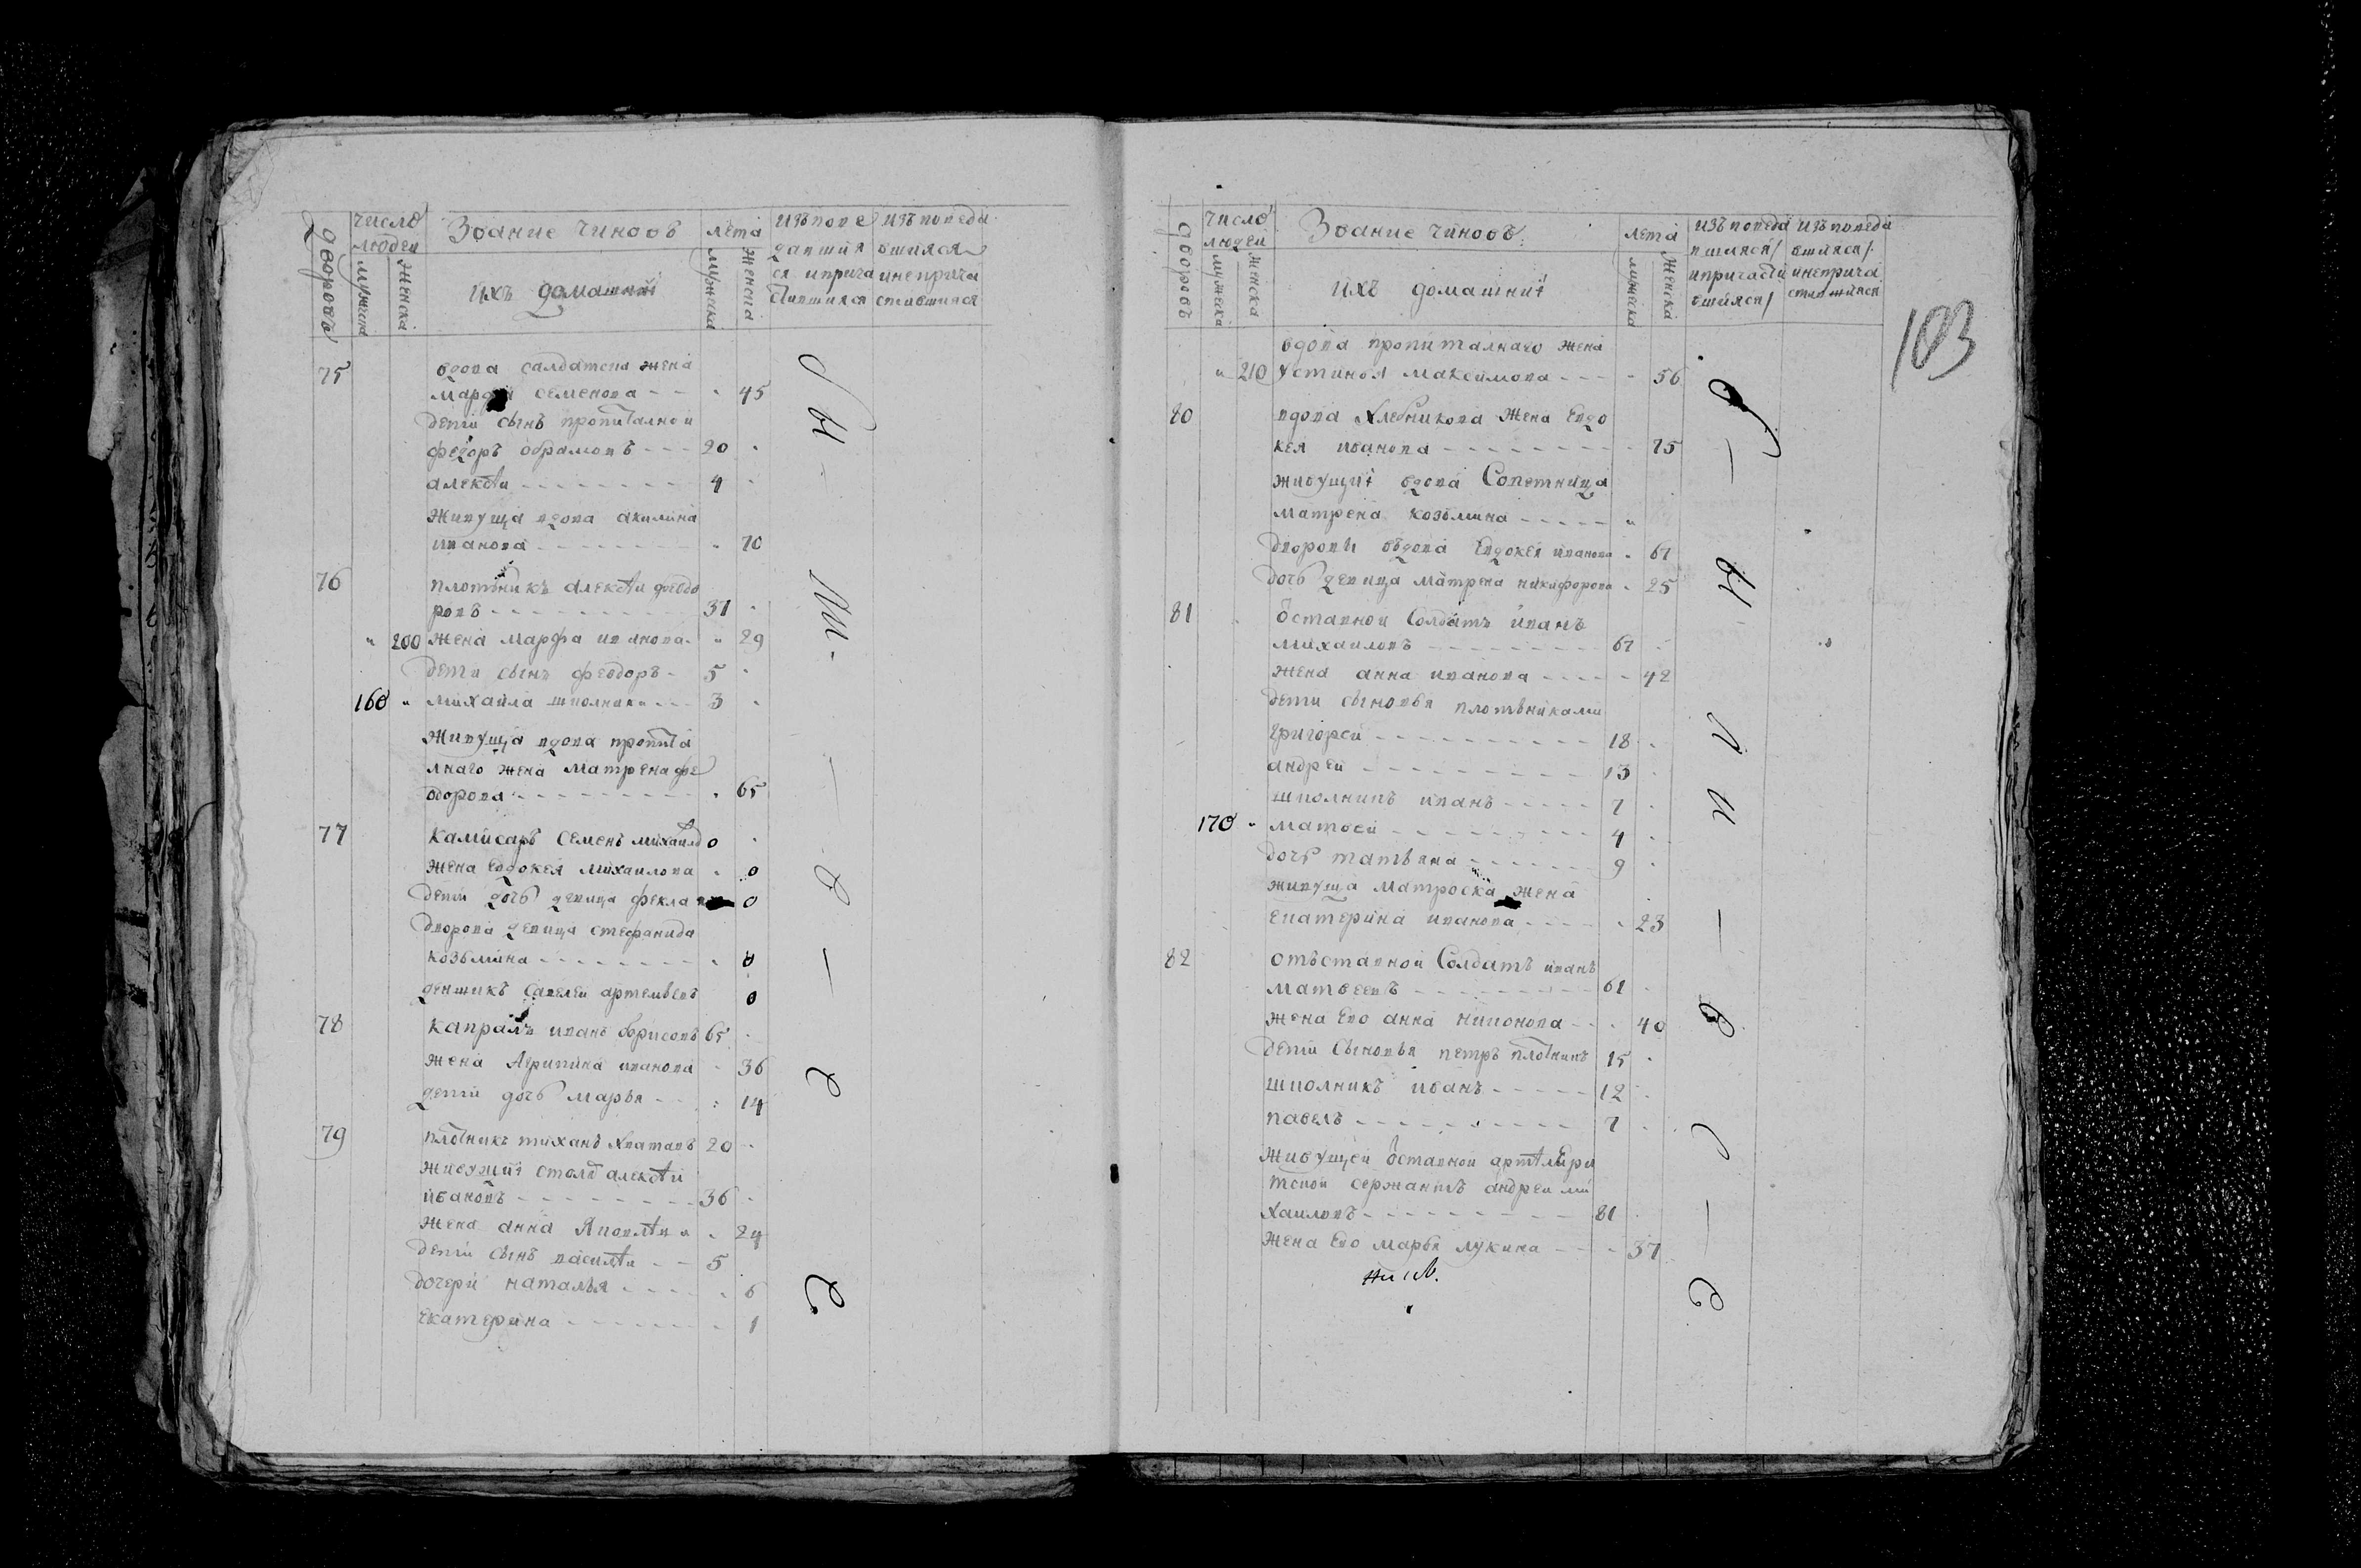 дворовъ
число людеи
мужеска
женска
Звание чиновъ
ихъ домашнiи
лета
мужеска
женска
75
вдова салдатска жена
марфа семенова - - 45
дети сынъ пропиталнои
федоръ абрамовъ - - - 20
алексѣи - - - - - - - 4
живуща вдова акилина
иванова - - - - - - - 70
76
плотникъ алексѣи феодо
ровъ - - - - - - - - 31
200 жена марфа иванова - 29
дети сынъ феодоръ - 5
160 михаила школники - - - 3
живуща вдова пропита
лнаго жена матрена фе
одорова - - - - - - - 65
77
камисаръ семенъ михаило 0
жена евдокея михаилова 0
дети дочь девица фекла 0
дворова девица стефанида
козьмина - - - - - - - 0
денщикъ савелеи артемьевъ 0
78
капралъ иванъ борисовъ 65
жена агрипина иванова 36
дети дочь марья - - 14
79
плотникъ тиханъ 20
алексѣи
ивановъ - - - - - - - 36
жена анна 29
дети сынъ василѣи - - 5
дочери наталья - - - - 6
екатерина - - - - - - 1
дворовъ
число людеи
мужеска
женска
Звание чиновъ
ихъ домашнiи
лета
мужеска
женска
103
вдова пропиталнаго жена
210 устинья максимова - - - 56
80
вдова хлебникова жена евдо
кея иванова - - - - - - - 75
живущиi вдова советница
матрена козьмина - - - - -
дворовы вдова евдокея иванова 67
дочь девица матрена никифорова 25
81
оставнои солдатъ иванъ
михаиловъ - - - - - - - 67
жена анна иванова - - - - 42
дети сыновья плотьниками
григореи - - - - - - - - 18
андреи - - - - - - - - 13
школникъ иванъ - - - - - 7
170 матвеи - - - - - - - - 4
дочь татьяна - - - - - - 9
живуща матроска жена
екатерина иванова - - - - 23
82
отъставнои солдатъ иванъ
матвеевъ - - - - - - - 61
жена ево анна никонова - - 40
дети сыновья петръ плотникъ 15
школникъ иванъ - - - - - 12
павелъ - - - - - - - - 7
живущеи оставнои артѣлери
искои сержантъ андреи ми
хаиловъ - - - - - - - - 81
жена ево марья лукина - - - 37